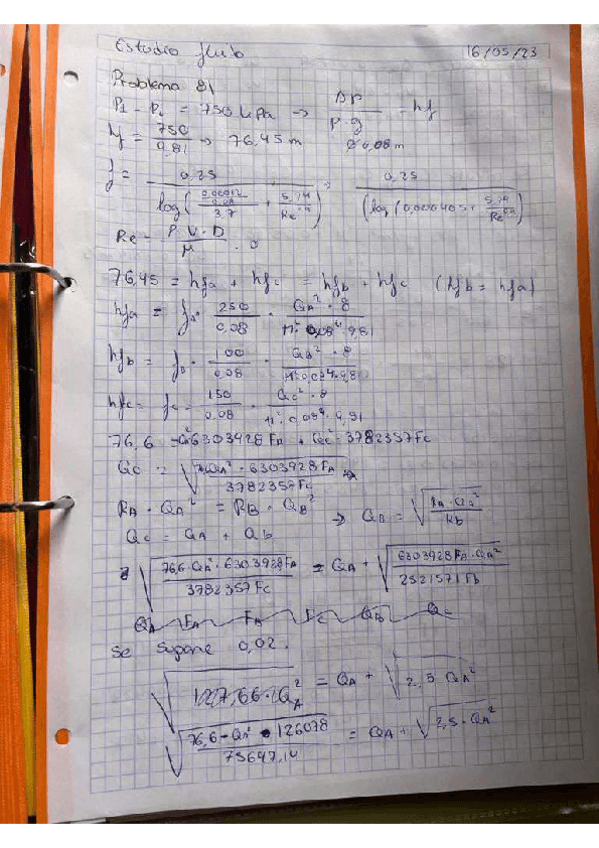 Estudio fluido 16/05/23
Problema 81
P1 - P2 = 750 kPa → ΔP / ρ·g = hf
hf = 750 / 9,81 → 76,45 m Ø 0,08 m
f = 0,25 / log( 0,00012/0,08 / 3,7 + 5,74 / Re^0,9 ) 0,25 / (log( 0,000405 + 5,74 / Re^0,9 )
Re = ρ·V·D / μ
76,45 = hfa + hfc = hfb + hfc (hfb = hfa)
hfa = fa · 250 / 0,08 · QA² · 8 / π² · 0,08⁴ · 9,81
hfb = fb · 100 / 0,08 · QB² · 8 / π² · 0,08⁴ · 9,81
hfc = fc · 150 / 0,08 · Qc² · 8 / π² · 0,08⁴ · 9,81
76,6 = QA² 6303928 FA + Qc² · 3782357 Fc
Qc = √ QA² · 6303928 FA / 3782357 Fc
RA · QA² = RB · QB² ⇒ QB = √ RA · QA² / Rb
Qc = QA + Qb
√ 76,6 - QA² · 6303928 FA / 3782357 Fc = QA + √ 6303928 FA · QA² / 2521571 Fb
QA FA FA Fc QB Qc
Se supone 0,02.
√ 127,66 · QA² = QA + √ 2,5 · QA²
√ 76,6 - QA² · 126078 / 75647,14 = QA + √ 2,5 · QA²